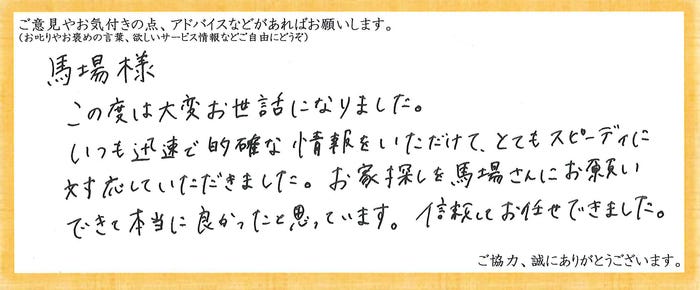 ご意見やお気付きの点、アドバイスなどがあればお願いします。
(お叱りやお褒めの言葉、欲しいサービス情報などご自由にどうぞ)
馬場様
この度は大変お世話になりました。
いつも迅速で的確な情報をいただけて、とてもスピーディに
対応していただきました。お家探しを馬場さんにお願い
できて本当に良かったと思っています。信頼してお任せできました。
ご協力、誠にありがとうございます。